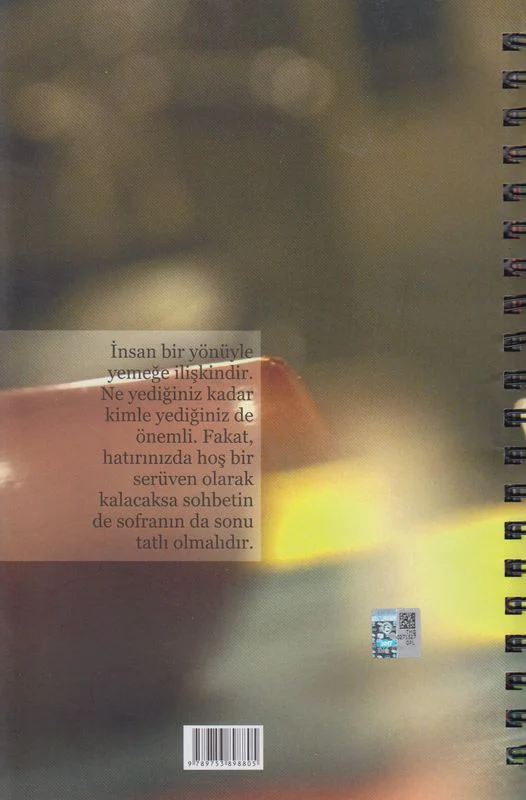 İnsan bir yönüyle
yemeğe ilişkindir.
Ne yediğiniz kadar
kimle yediğiniz de
önemli. Fakat,
hatırınızda hoş bir
serüven olarak
kalacaksa sohbetin
de sofranın da sonu
tatlı olmalıdır.
9789753898805